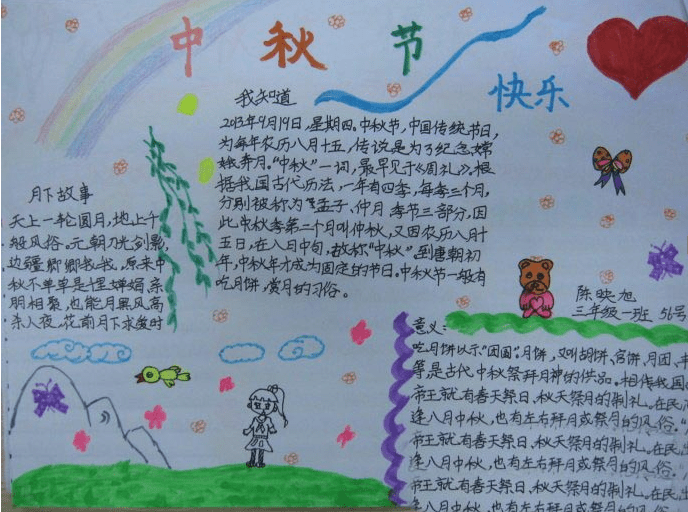 中秋节
快乐
我知道
2013年9月19日，星期四。中秋节，中国传统节日，
为每年农历八月十五，传说是为了纪念嫦
娥奔月。“中秋”一词，最早见于《周礼》。根
据我国古代历法，一年有四季，每季三个月，
分别被称为孟子、仲月、季节三部分，因
此中秋季第二个月叫仲秋，又因农历八月十
五日，在八月中旬，故称“中秋”。到唐朝初
年，中秋年才成为固定的节日。中秋节一般有
吃月饼，赏月的习俗。
月下故事
天上一轮圆月，地上千
般风俗。元朝刀光剑影，
边疆卿卿我我，原来中
秋不单单是千里婵娟，亲
朋相聚，也能月黑风高
杀人夜，花前月下求爱时
陈映旭
三年级一班 56号
意义：
吃月饼以示“团圆”。月饼，又叫胡饼、宫饼、月团、
等是古代中秋祭拜月神的供品。相传我国
帝王就有春天祭日、秋天祭月的制礼。在民
逢八月中秋，也有左右拜月或祭月的风俗。
帝王就有春天祭日、秋天祭月的制礼。在民
逢八月中秋，也有左右拜月或祭月的风俗。
帝王就有春天祭日、秋天祭月的制礼。在民
逢八月中秋，也有左右拜月或祭月的风俗